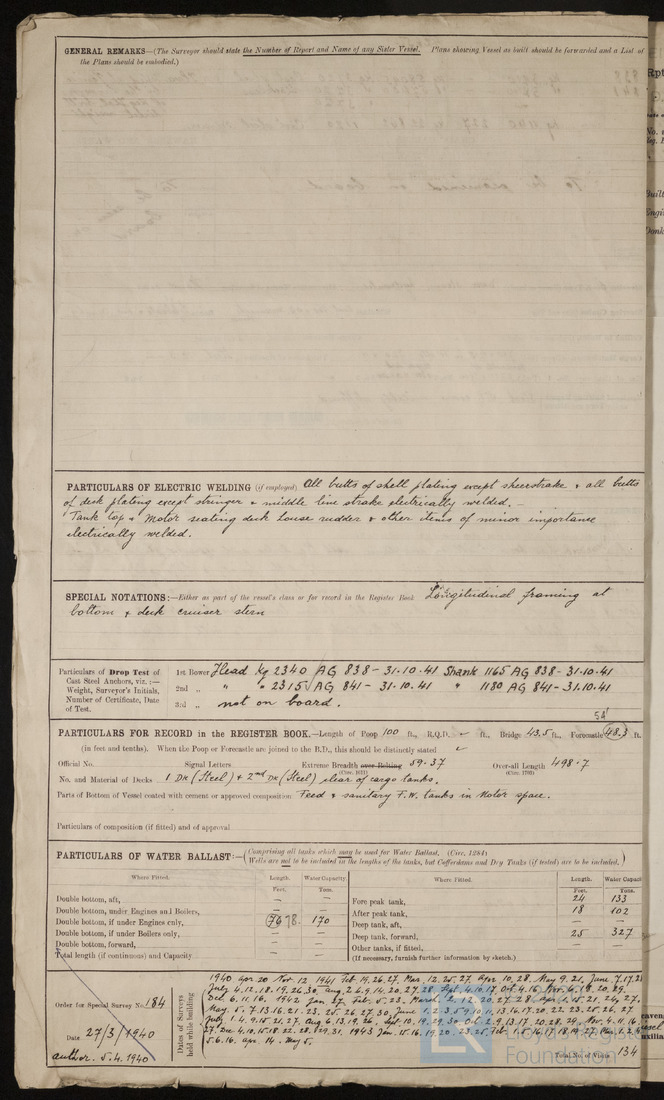 GENERAL REMARKS—(The Surveyor should state the Number of Report and Name of any Sister Vessel. Plans showing Vessel as built should be forwarded and a List of
the Plans should be embodied.)
PARTICULARS OF ELECTRIC WELDING (if employed) All butts of shell plating except sheerstrake & all butts
of deck plating except stringer & middle line strake electrically welded.—
Tank top & Motor seating deck house rudder & other items of minor importance
electrically welded.
SPECIAL NOTATIONS:—Either as part of the vessel's class or for record in the Register Book Longitudinal framing at
bottom & deck cruiser stern
Particulars of Drop Test of
Cast Steel Anchors, viz.:—
Weight, Surveyor's Initials,
Number of Certificate, Date
of Test.
1st Bower Head kg 2340 AG 838 - 31.10.41 Shank 1165 AG 838 - 31.10.41
2nd „ " " 2315 AG 841 - 31.10.41 " 1180 AG 841 - 31.10.41
3rd „ not on board.
54'
PARTICULARS FOR RECORD in the REGISTER BOOK.—Length of Poop 100 ft., R.Q.D. ft., Bridge 43.5 ft., Forecastle 48.3 ft.
(in feet and tenths). When the Poop or Forecastle are joined to the B.D., this should be distinctly stated
Official No. Signal Letters Extreme Breadth over Belting 59.37 Over-all Length 498.7
(Circ. 1611) (Circ. 1703)
No. and Material of Decks 1 Dk (Steel) & 2nd Dk (Steel) clear of cargo tanks.
Parts of Bottom of Vessel coated with cement or approved composition Feed & sanitary F.W. tanks in Motor space.
Particulars of composition (if fitted) and of approval
PARTICULARS OF WATER BALLAST:—(Comprising all tanks which may be used for Water Ballast, (Circ. 1284)
Wells are not to be included in the lengths of the tanks, but Cofferdams and Dry Tanks (if tested) are to be included.)
Where Fitted. Length. Water Capacity.
Feet. Tons.
Double bottom, aft, — —
Double bottom, under Engines and Boilers, — —
Double bottom, if under Engines only, 76 78. 170
Double bottom, if under Boilers only, — —
Double bottom, forward, — —
Total length (if continuous) and Capacity
Where Fitted. Length. Water Capacit
Feet. Tons.
Fore peak tank, 24 133
After peak tank, 18 102
Deep tank, aft, — —
Deep tank, forward, 25 327
Other tanks, if fitted,
(If necessary, furnish further information by sketch.)
Order for Special Survey No. 184
Date 27/3/1940
auth. dr. 5.4.1940
Dates of Surveys
held while building
1940 Apr 20 Nov 12 1941 Feb 19, 26, 27, Mar. 12, 25, 27 Apr 10, 28, May 9, 21, June 7, 17, 23
July 4, 12, 18, 19, 26, 30, Aug. 2, 6, 9, 14, 20, 27, 28 Sept. 4, 10, 17, Oct. 4, 16
Dec 6, 11, 16, 1942 Jan 27, Feb. 5, 23, March
May 5, 7, 13, 16, 21, 23, 25, 26, 27, 30, June
5, 6, 16. Apr. 14. May 5.
Total No. of Visits 134
Lloyd's Register
Foundation
Rpt